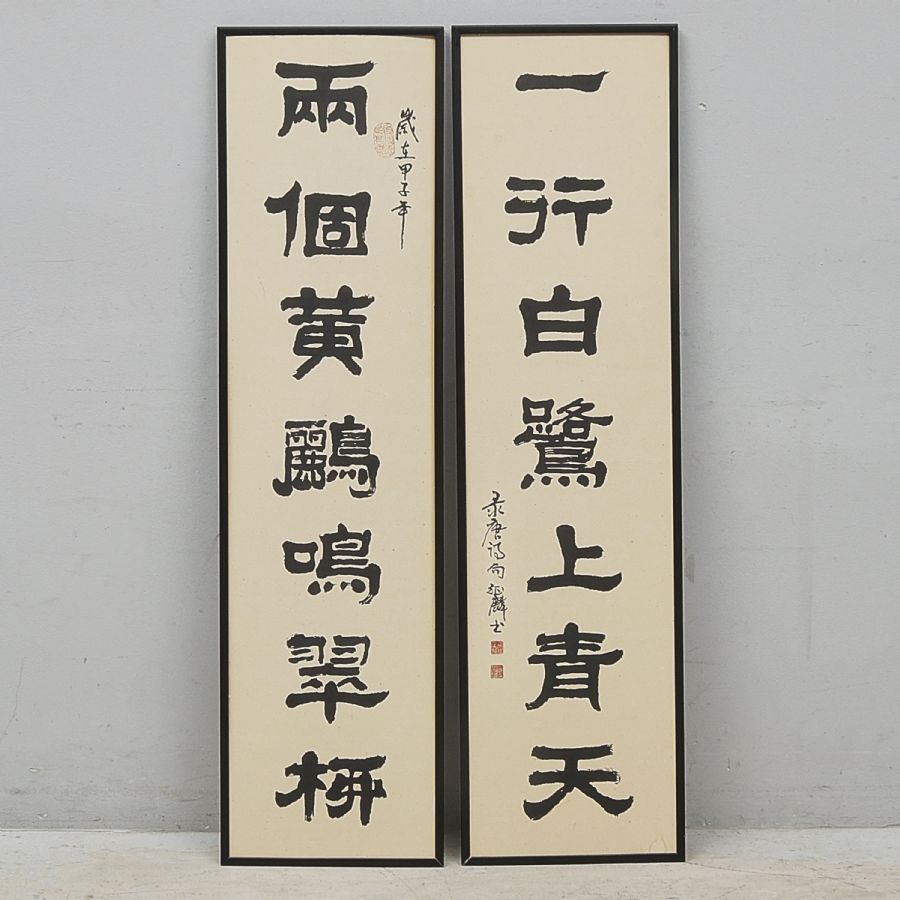 歲在甲子年
兩個黄鸝鳴翠柳
一行白鷺上青天
录唐诗句 麟书